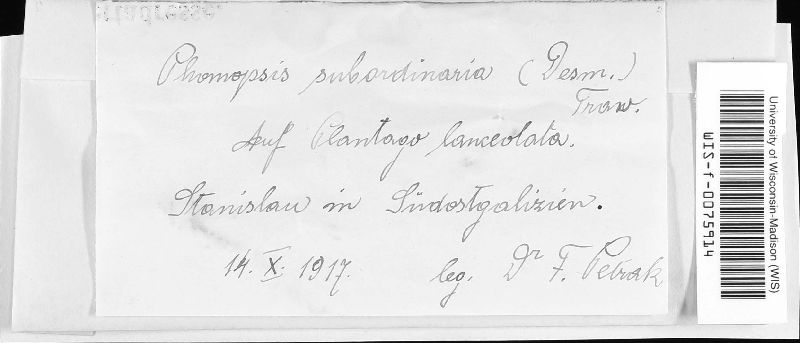 Phomopsis subordinaria (Desm.)
Trav.
Auf Plantago lanceolata.
Stanislau in Südostgalizien.
14. X. 1917. leg. Dr F. Petrak
University of Wisconsin-Madison (WIS)
WIS-f-0075914